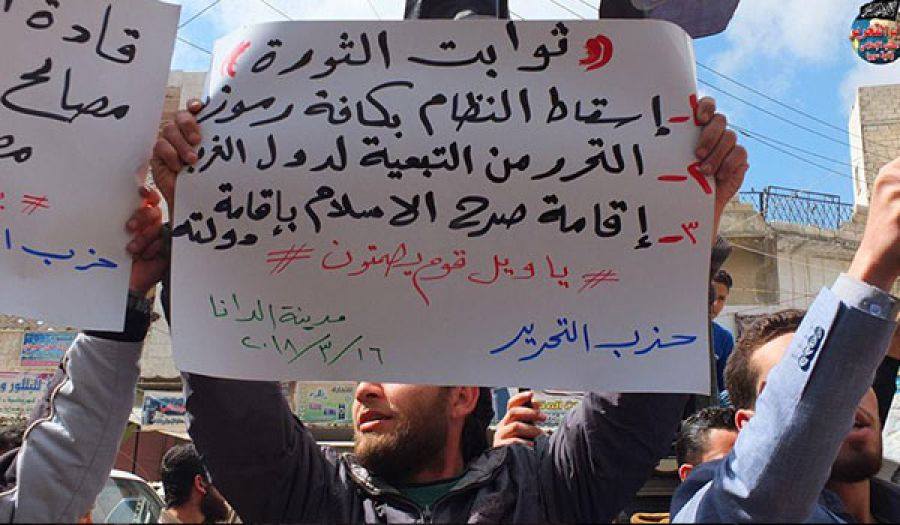 « ثوابت الثورة »
١- إسقاط النظام بكافة رموزه
٢- التحرر من التبعية لدول الغرب
٣- إقامة صرح الاسلام بإقامة
دولته
# يا ويل قوم يصمتون #
مدينة الدانا
٢٠١٨/٣/١٦
حزب التحرير
قادة
مصالح
#
حزب ا